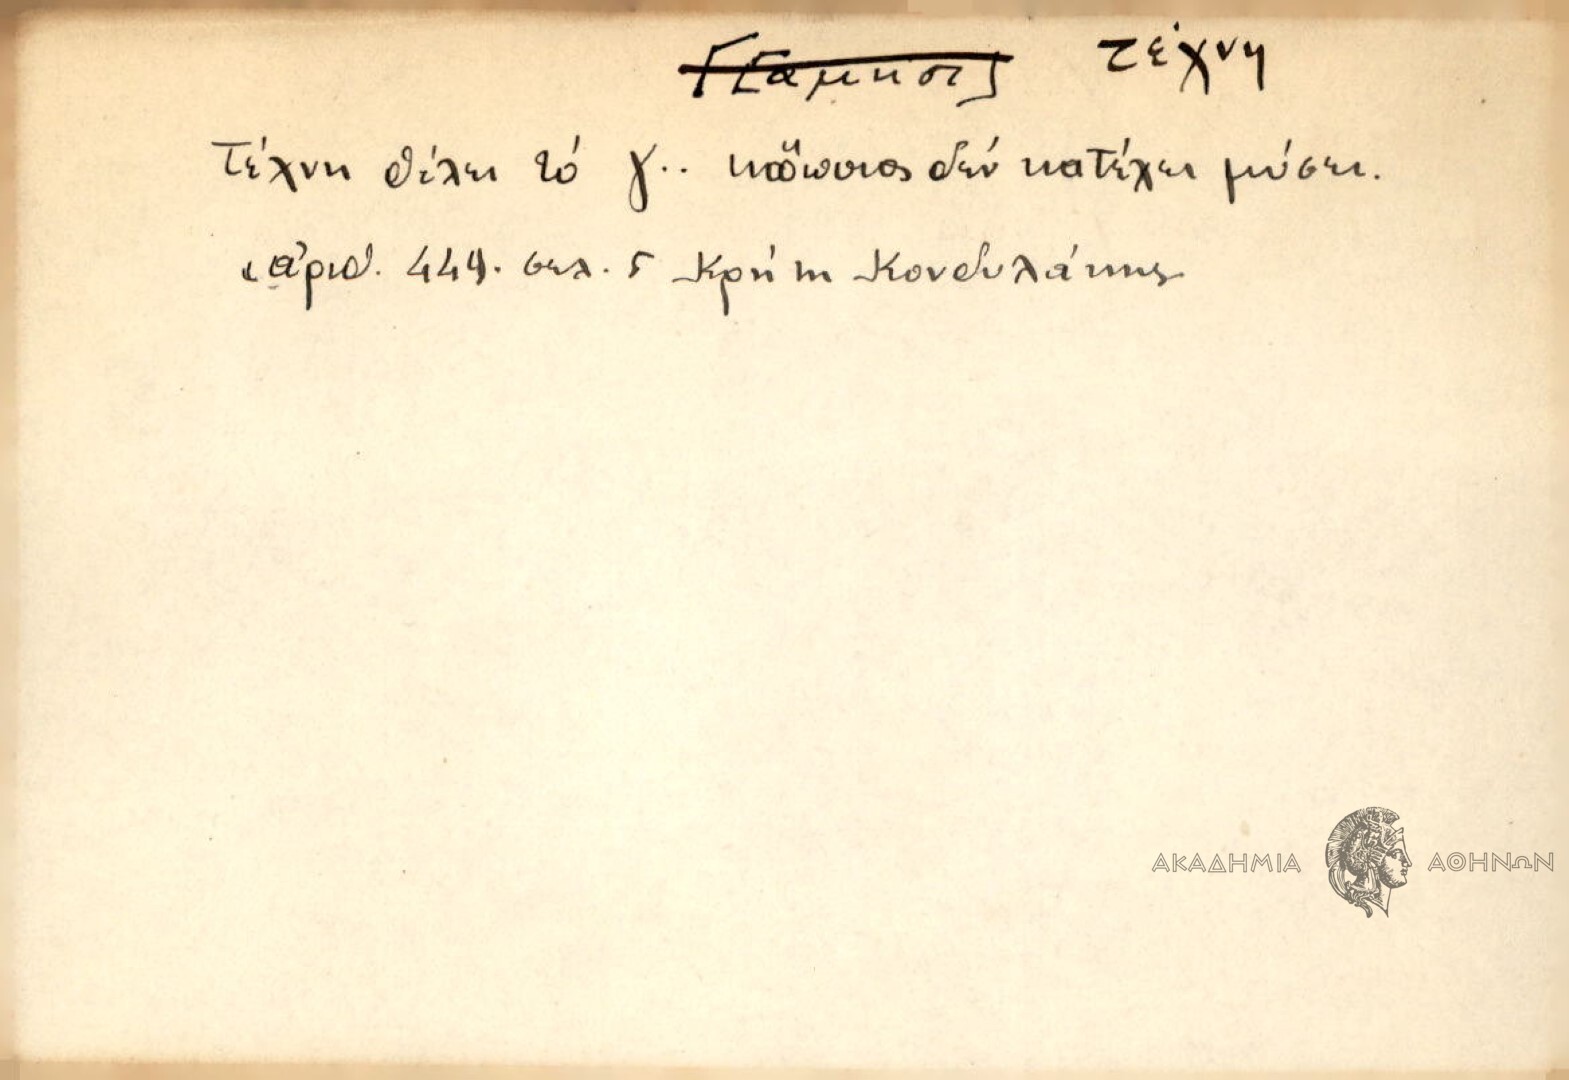 Γ[Γάμησι] τέχνη
Τέχνη θέλει τό γ.. κι ὅποιος δέν κατέχει μύσει.
ἀριθ. 449. σελ. 5 Κρήτη Κονδυλάκης
ΑΚΑΔΗΜΙΑ ΑΘΗΝΩΝ